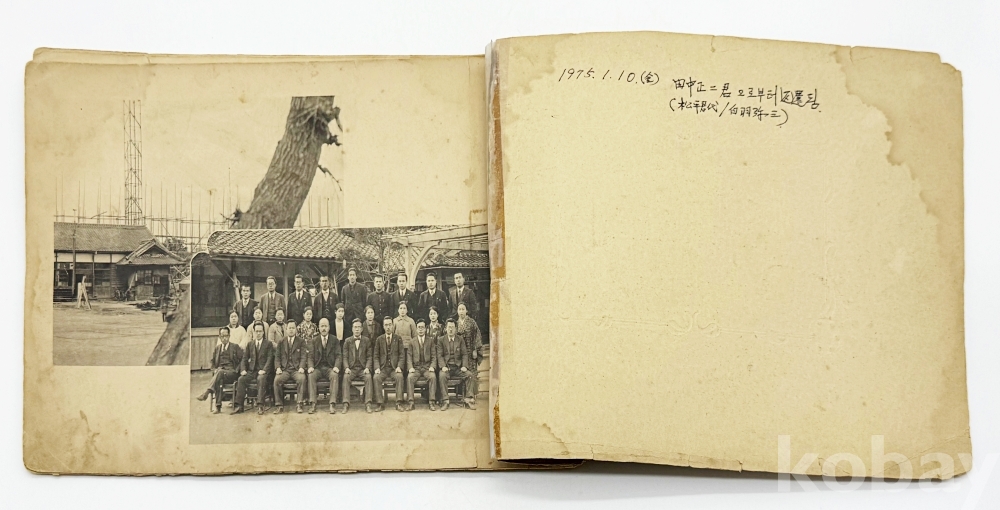 1975.1.10.(金) 田中正二君으로부터 返還됨.
(松平君代/白羽弥三)
kobay